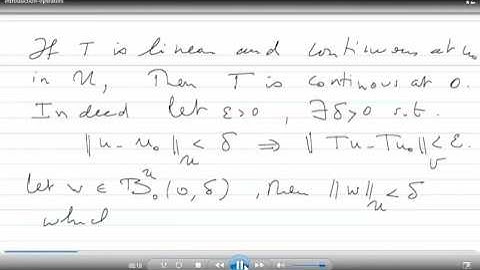 introduction-operators
If T is linear and continuous at u₀
in U, Then T is continous at 0.
Indeed let ε>0, ∃δ>0 s.t.
‖u-u₀‖_U < δ ⇒ ‖Tu-Tu₀‖_V < ε.
let w ∈ B₀^U(0,δ), then ‖w‖_U < δ
which